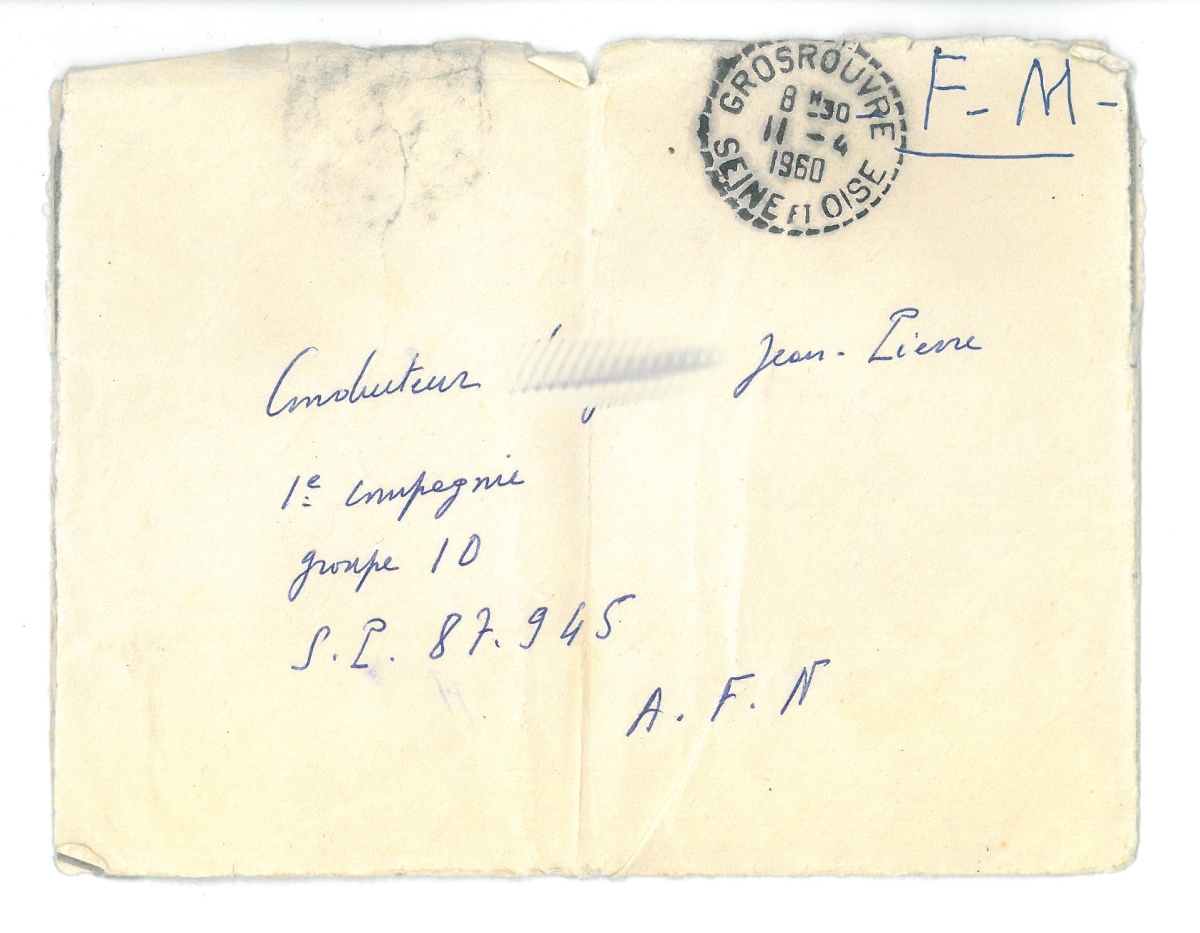 GROSROUVRE
8 H30
11 - 4
1960
SEINE ET OISE
F. M.
Conducteur Jean-Pierre
1e compagnie
groupe 10
S.P. 87.945
A.F.N